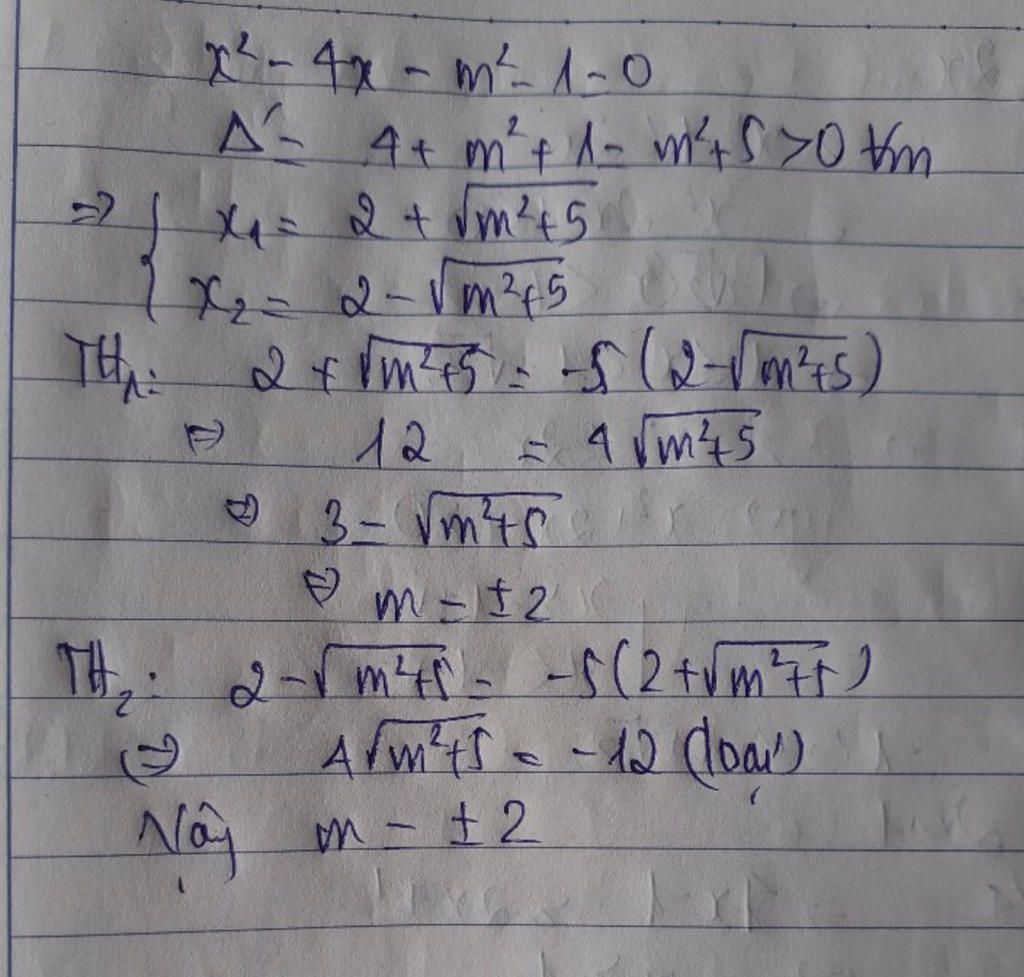 x² - 4x - m² - 1 = 0
Δ' = 4 + m² + 1 = m² + 5 > 0 ∀m
=> { x₁ = 2 + √(m²+5)
x₂ = 2 - √(m²+5)
TH₁: 2 + √(m²+5) = -5(2 - √(m²+5))
⇔ 12 = 4√(m²+5)
⇔ 3 = √(m²+5)
⇔ m = ±2
TH₂: 2 - √(m²+5) = -5(2 + √(m²+5))
⇔ 4√(m²+5) = -12 (loại)
Vậy m = ±2